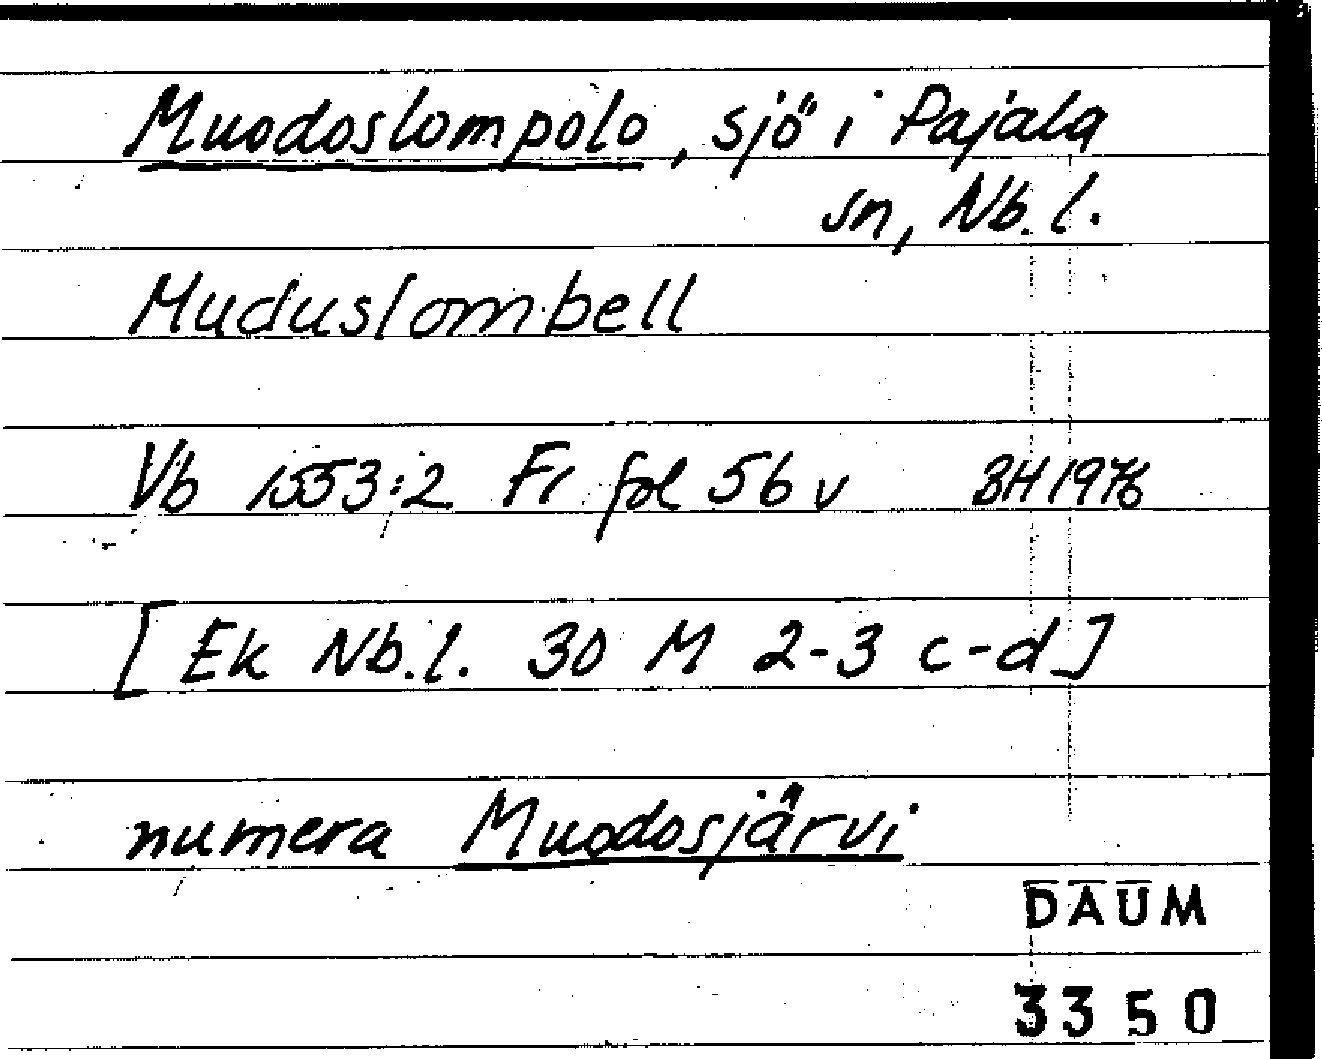 Muodoslompolo, sjö i Pajala
sn, Nb.l.
Muduslombell
Vb 1553:2 Fr fol 56 v BH 1976
[Ek Nb.l. 30 M 2-3 c-d]
numera Muodosjärvi
DAUM
3350